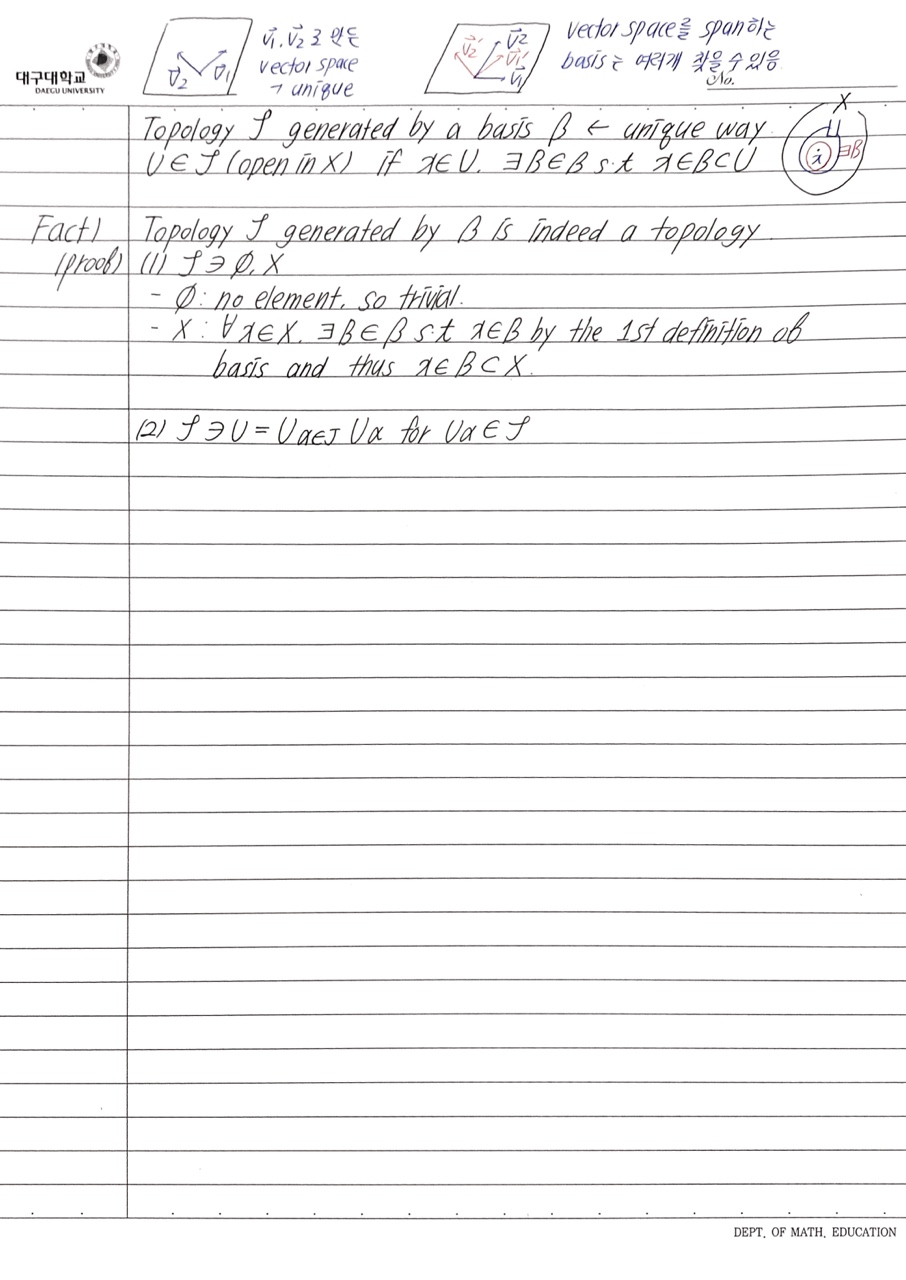 대구대학교
DAEGU UNIVERSITY
v⃗₂ v⃗₁
v⃗₁, v⃗₂로 만든
vector space
→ unique
v⃗₂' v⃗₂ v⃗₁' v⃗₁
vector space를 span하는
basis는 여러개 찾을 수 있음
No.
Topology 𝒯 generated by a basis β ← unique way
U∈𝒯 (open in X) if x∈U, ∃B∈β s.t x∈B⊂U
X
U
x ∃B
Fact) Topology 𝒯 generated by β is indeed a topology
(proof) (1) 𝒯∋∅, X
- ∅: no element, so trivial.
- X: ∀x∈X, ∃B∈β s.t x∈B by the 1st definition of
basis and thus x∈B⊂X.
(2) 𝒯∋U = ∪α∈J Uα for Uα∈𝒯
DEPT. OF MATH. EDUCATION